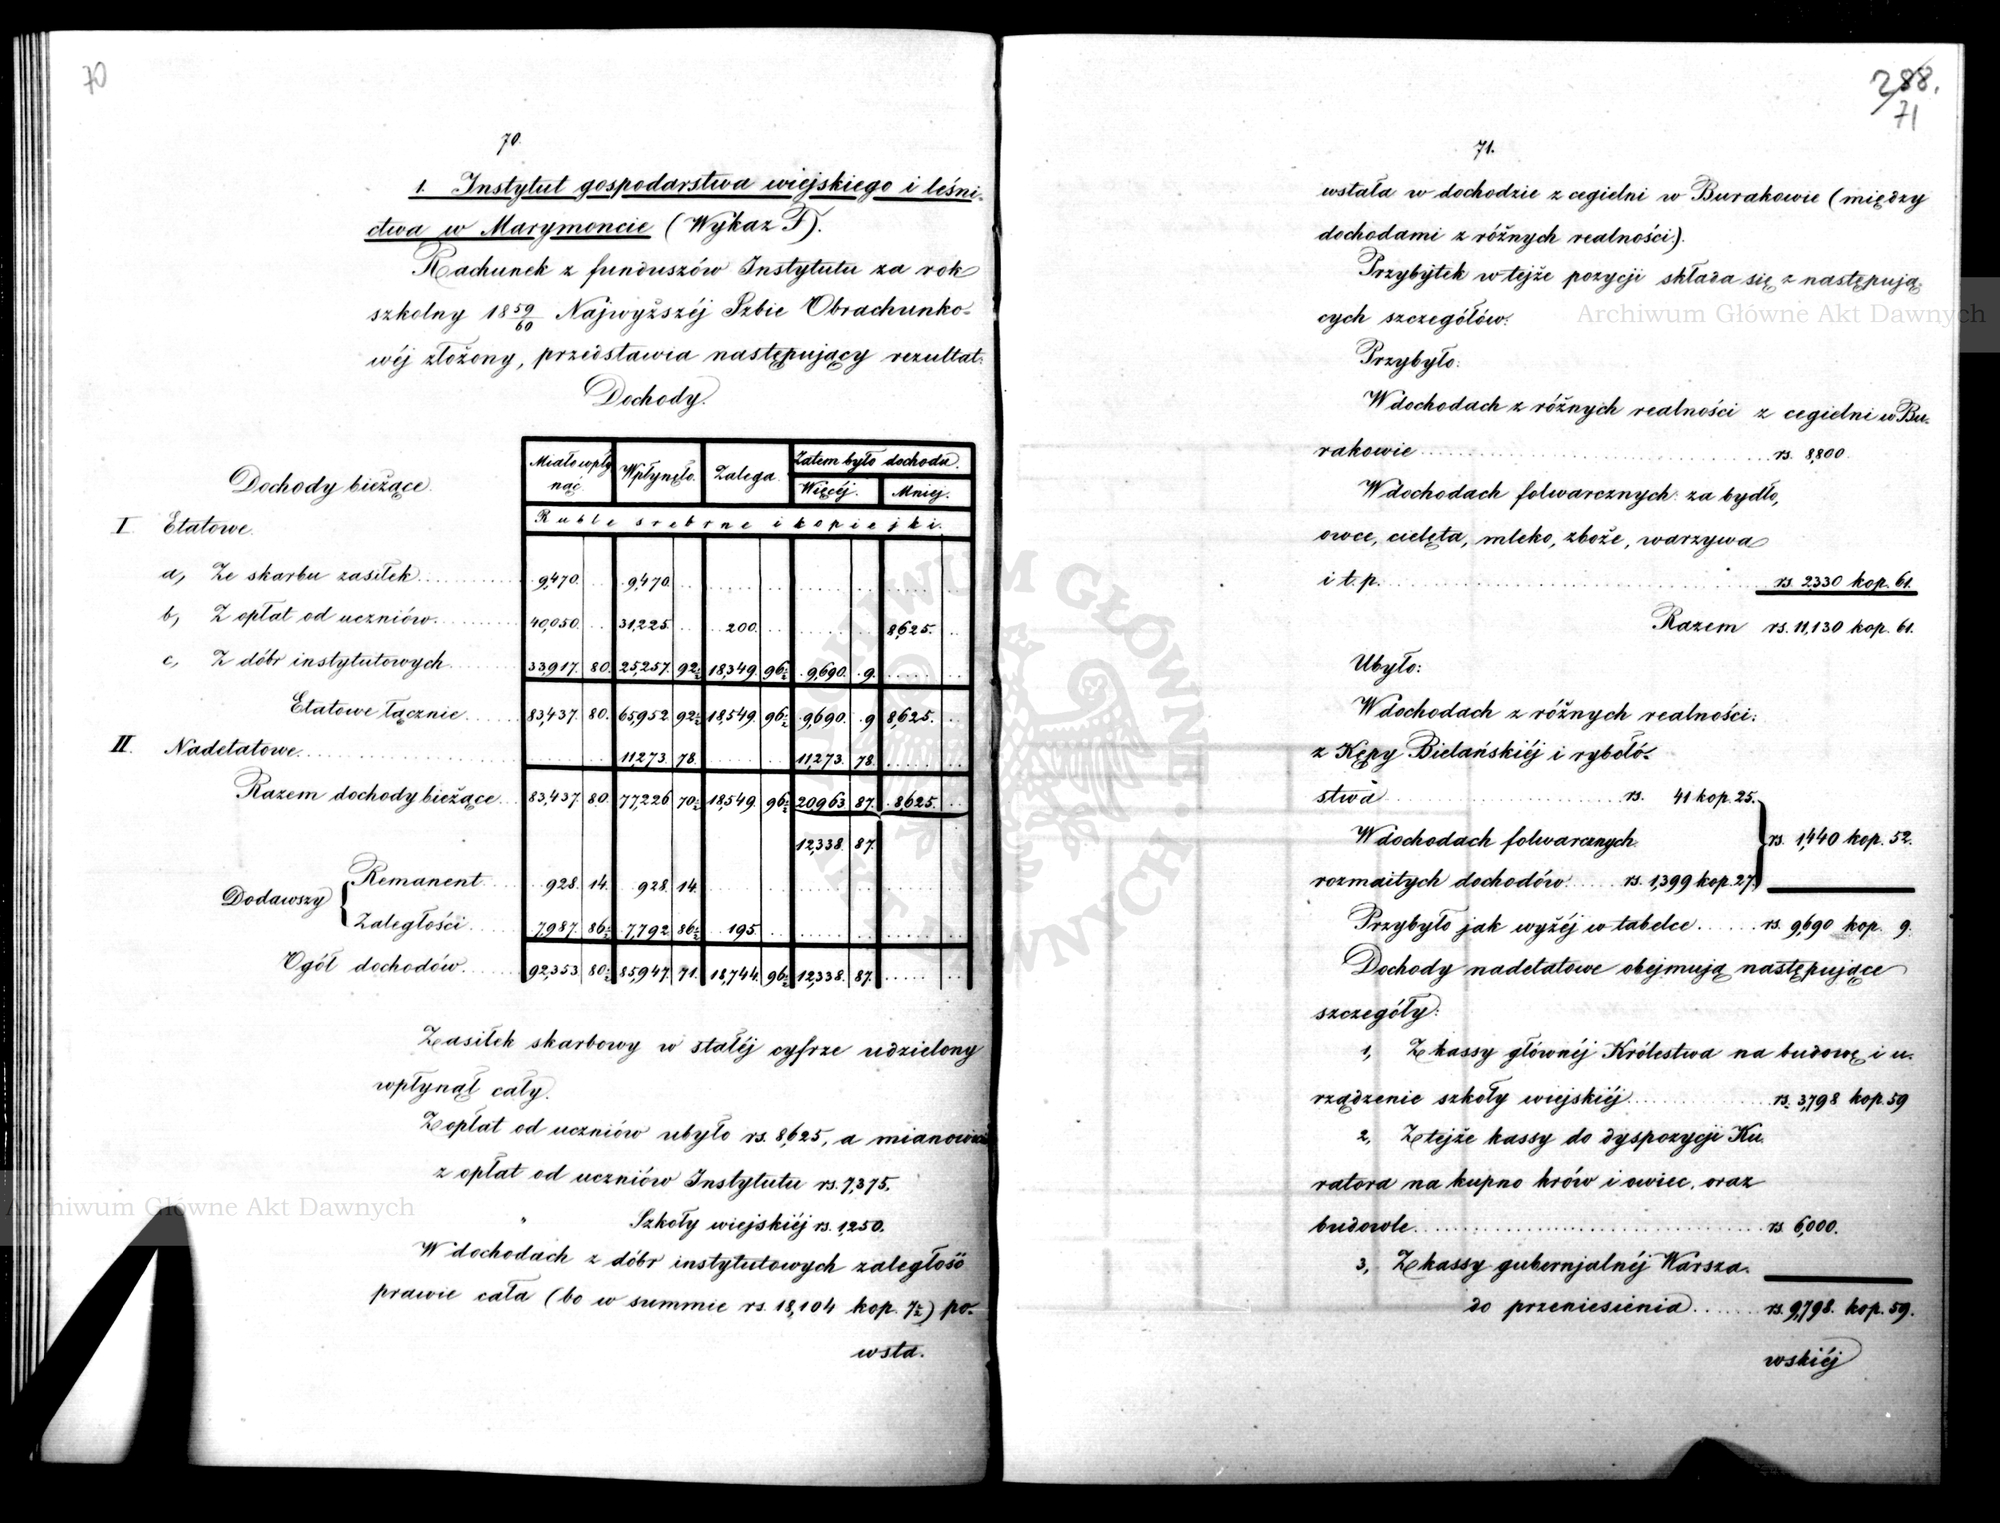 70
70.
1. Instytut gospodarstwa wiejskiego i leśni-
ctwa w Marymoncie (Wykaz F).
Rachunek z funduszów Instytutu za rok
szkolny 18 59/60 Najwyższéj Izbie Obrachunko-
wéj złożony, przedstawia następujący rezultat:
Dochody.
Dochody bieżące. | Miało wpłynąć | Wpłynęło | Zalega | Zatem było dochodu. Więcéj. | Mniej.
Ruble srebrne i kopiejki.
I. Etatowe.
a, Ze skarbu zasiłek ... 9,470. | 9,470.
b, Z opłat od uczniów. ... 40,050. | 31,225. | 200. | | 8,625.
c, Z dóbr instytutowych ... 33,917. 80. | 25,257. 92½ | 18,349. 96½ | 9,690. 9. |
Etatowe łącznie ... 83,437. 80. | 65,952. 92½ | 18,549. 96½ | 9,690. 9 | 8,625.
II. Nadetatowe ... | 11,273. 78. | | 11,273. 78. |
Razem dochody bieżące ... 83,437. 80. | 77,226 70½ | 18,549. 96½ | 20,963 87. | 8,625.
12,338. 87.
Dodawszy { Remanent ... 928. 14. | 928. 14.
Zaległości ... 7,987. 86½ | 7,792 86½ | 195
Ogół dochodów ... 92,353. 80½ | 85,947. 71. | 18,744. 96½ | 12,338. 87.
Zasiłek skarbowy w stałéj cyfrze udzielony
wpłynął cały.
Z opłat od uczniów ubyło rs. 8,625, a mianowicie
z opłat od uczniów Instytutu rs. 7,375.
" Szkoły wiejskiéj rs. 1,250.
W dochodach z dóbr instytutowych zaległość
prawie cała (bo w summie rs. 18,104 kop. 7½) po-
wsta-
288.
71
71.
wstała w dochodzie z cegielni w Burakowie (między
dochodami z różnych realności).
Przybytek w tejże pozycji składa się z następują-
cych szczegółów:
Przybyło:
W dochodach z różnych realności z cegielni w Bu-
rakowie ... rs. 8,800.
W dochodach folwarcznych: za bydło,
owce, cielęta, mleko, zboże, warzywa
i t. p. ... rs. 2,330 kop. 61.
Razem rs. 11,130 kop. 61.
Ubyło:
W dochodach z różnych realności:
z Kępy Bielańskiéj i rybołó-
stwa ... rs. 41 kop. 25.
W dochodach folwarcznych } rs. 1,440 kop. 52.
rozmaitych dochodów ... rs. 1,399 kop. 27.
Przybyło jak wyżéj w tabelce ... rs. 9,690 kop. 9.
Dochody nadetatowe obejmują następujące
szczegóły:
1, Z kassy głównéj Królestwa na budowę i u-
rządzenie szkoły wiejskiéj ... rs. 3,798 kop. 59
2, Z tejże kassy do dyspozycji Ku-
ratora na kupno krów i owiec, oraz
budowle ... rs. 6,000.
3, Z kassy gubernjalnéj Warsza-
do przeniesienia ... rs. 9,798. kop. 59.
wskiéj
Archiwum Główne Akt Dawnych
Archiwum Główne Akt Dawnych
ARCHIWUM GŁÓWNE AKT DAWNYCH